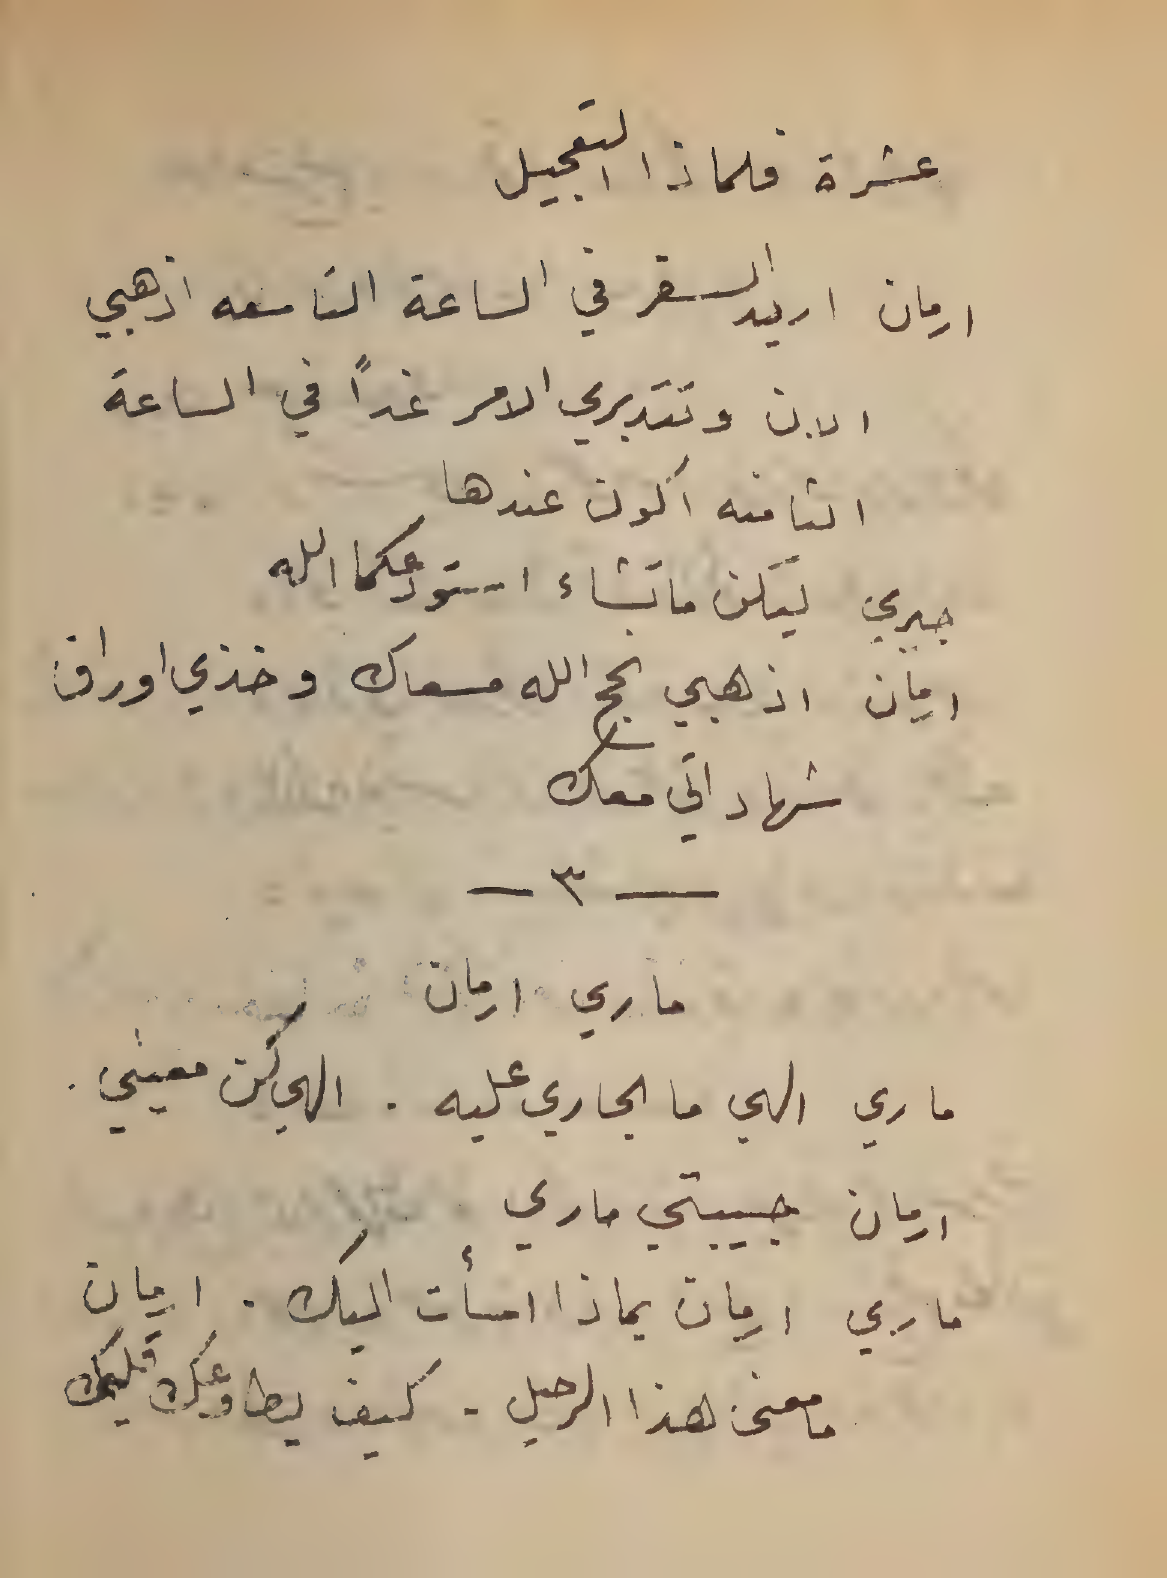 عشرة فلماذا التعجيل
ارمان اريد السفر في الساعة التاسعه اذهبي
الان وتتدبري الامر غداً في الساعة
الثامنه اكون عندها
جيري ليكن ما تشاء استودعكما الله
ارمان اذهبي نجح الله مسعاك وخذي اوراق
شهاداتي معك
— ٣ —
ماري ارمان
ماري الهي ما الجاري عليه . الهي كن معيني .
ارمان حبيبتي ماري
ماري ارمان بماذا اسأت اليك . ارمان
ما معنى هذا الرحيل . كيف يطاوعك قلبك